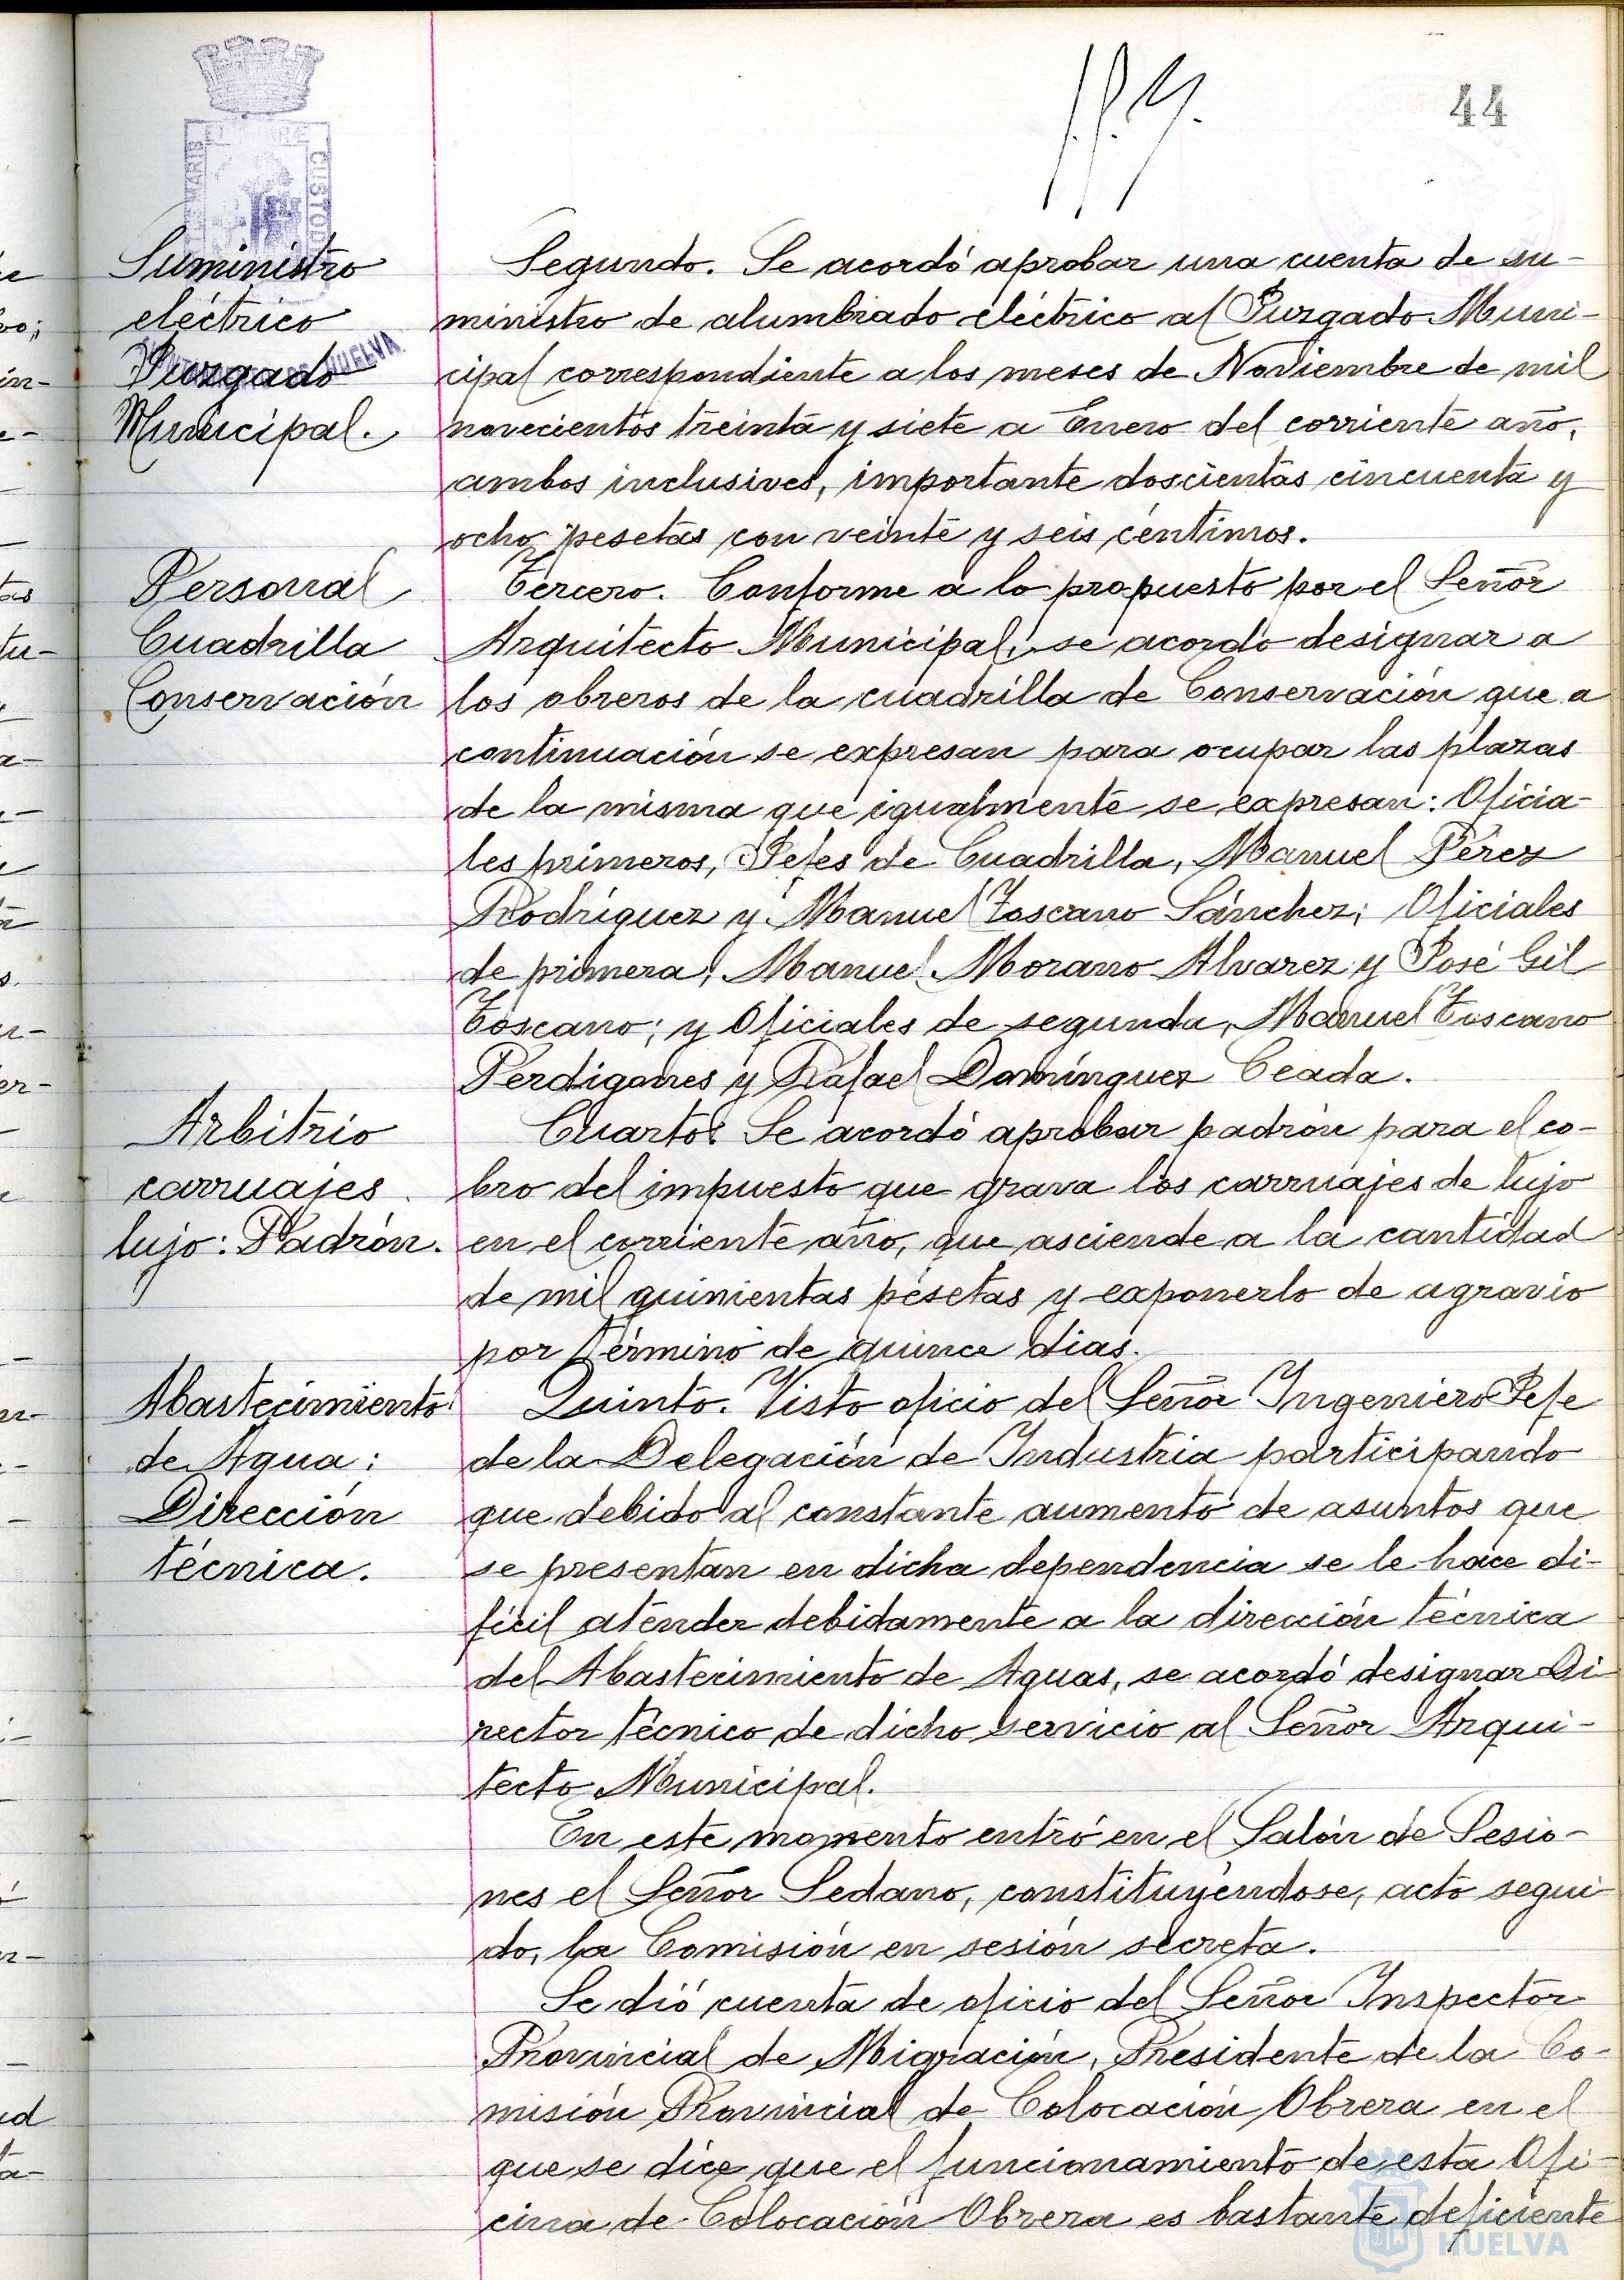 44
Suministro
eléctrico
Juzgado
Municipal.
Segundo. Se acordó aprobar una cuenta de su-
ministro de alumbrado eléctrico al Juzgado Muni-
cipal correspondiente a los meses de Noviembre de mil
novecientos treinta y siete a Enero del corriente año,
ambos inclusives, importante doscientas cincuenta y
ocho pesetas con veinte y seis céntimos.
Personal
Cuadrilla
Conservación
Tercero. Conforme a lo propuesto por el Señor
Arquitecto Municipal, se acordó designar a
los obreros de la cuadrilla de Conservación que a
continuación se expresan para ocupar las plazas
de la misma que igualmente se expresan: Oficia-
les primeros, Jefes de Cuadrilla, Manuel Pérez
Rodríguez y Manuel Toscano Sánchez; Oficiales
de primera, Manuel Morano Alvarez y José Gil
Toscano; y Oficiales de segunda, Manuel Toscano
Perdigones y Rafael Domínguez Ceada.
Arbitrio
carruajes
lujo: Padrón.
Cuarto. Se acordó aprobar padrón para el co-
bro del impuesto que grava los carruajes de lujo
en el corriente año, que asciende a la cantidad
de mil quinientas pesetas y exponerlo de agravio
por término de quince dias.
Abastecimiento
de Agua:
Dirección
técnica.
Quinto. Visto oficio del Señor Ingeniero Jefe
de la Delegación de Industria participando
que debido al constante aumento de asuntos que
se presentan en dicha dependencia se le hace di-
fícil atender debidamente a la dirección técnica
del Abastecimiento de Aguas, se acordó designar Di-
rector técnico de dicho servicio al Señor Arqui-
tecto Municipal.
En este momento entró en el Salón de Sesio-
nes el Señor Sedano, constituyéndose, acto segui-
do, la Comisión en sesión secreta.
Se dió cuenta de oficio del Señor Inspector
Provincial de Migración, Presidente de la Co-
misión Provincial de Colocación Obrera en el
que se dice que el funcionamiento de esta Ofi-
cina de Colocación Obrera es bastante deficiente
HUELVA